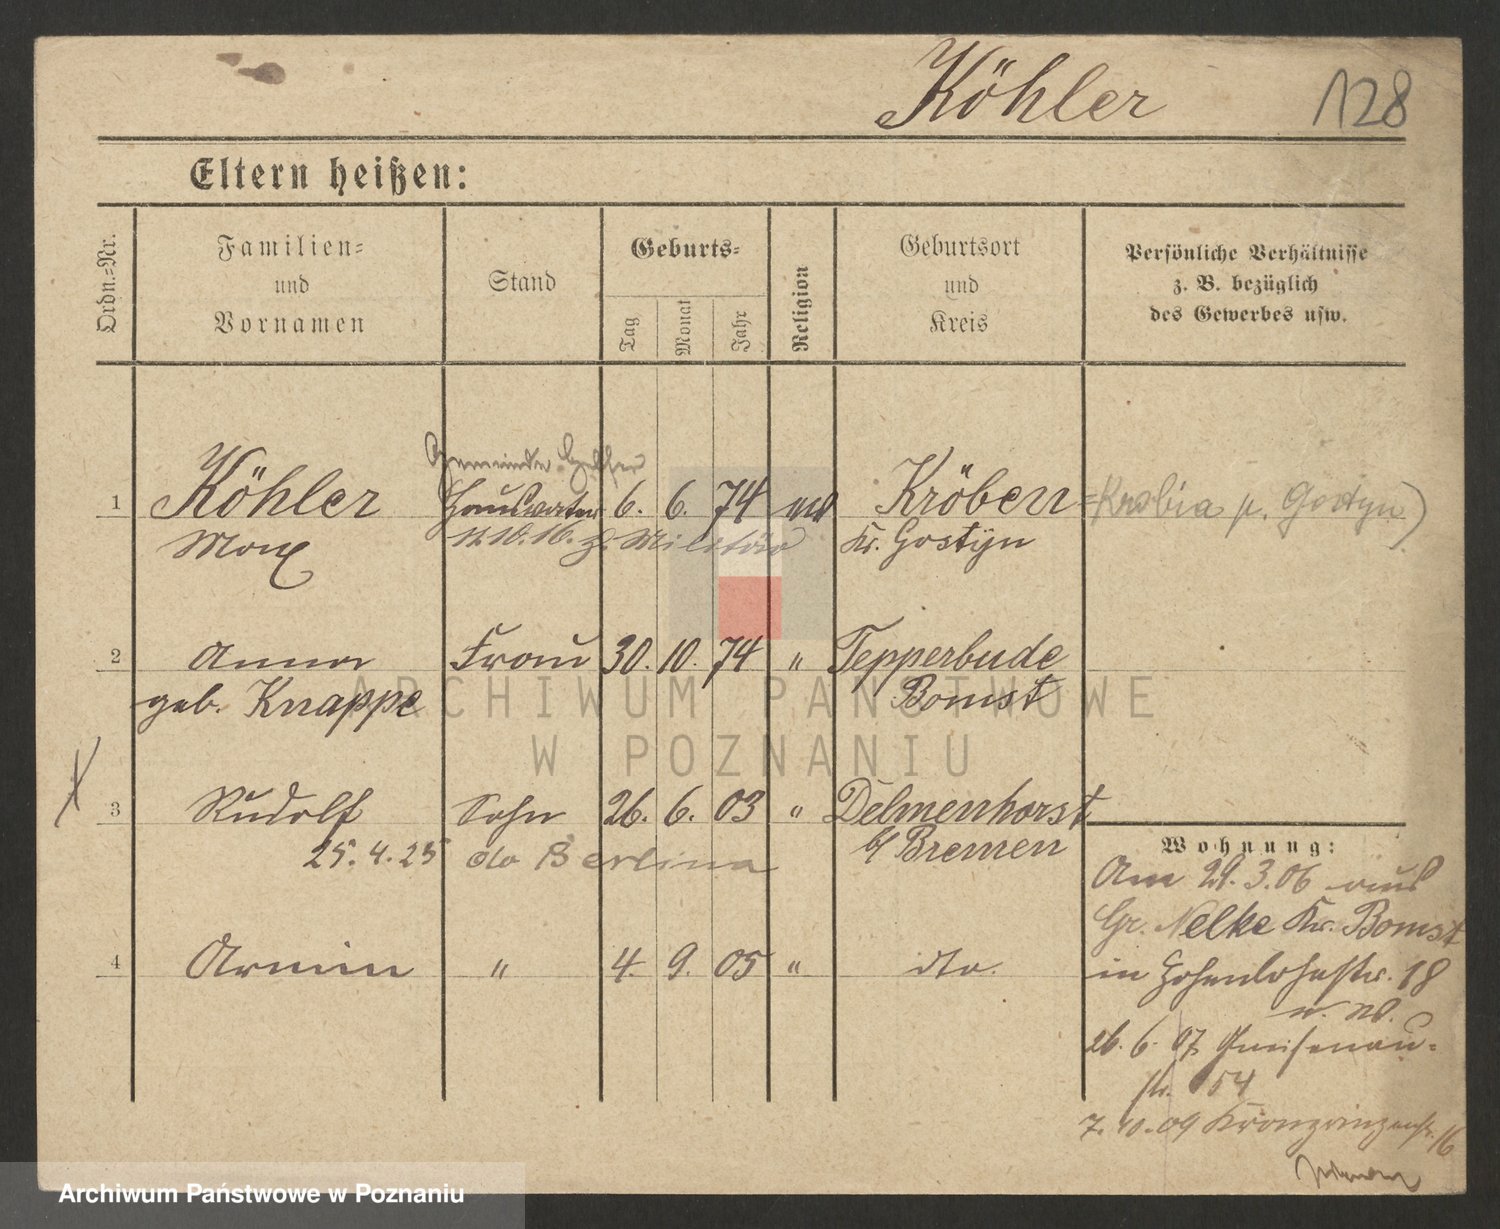 Köhler 128
Eltern heißen:
Ordn.=Nr.
Familien=
und
Vornamen
Stand
Geburts=
Tag Monat Jahr
Religion
Geburtsort
und
Kreis
Persönliche Verhältnisse
z. B. bezüglich
des Gewerbes usw.
Gemeinde Helfer
1 Köhler Hausvater 6. 6. 74 Kröben =Krobia p. Gostyn)
Max 11.10.16. z. Militär Kr. Gostyn
2 Anna Frau 30. 10. 74 " Tepperbude
geb. Knappe Bomst
3 Rudolf Sohn 26. 6. 03 " Delmenhorst
25.4.25 do Berlina b/ Bremen
4 Armin " 4. 9. 05 " dto.
Wohnung:
Am 29.3.06 aus
Gr. Nelke Kr. Bomst
in Hohenlohestr. 18
26.6.07 Gneisenau=
str. 54
7.10.09 Kronprinzenstr. 16
ARCHIWUM PAŃSTWOWE
W POZNANIU
Archiwum Państwowe w Poznaniu